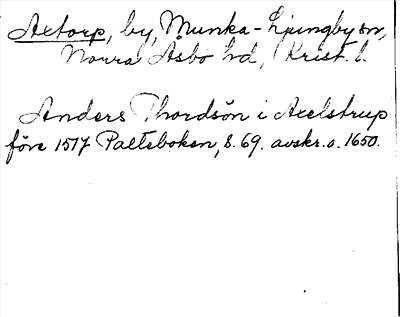 Axtorp, by, Munka-Ljungby sn,
Norra Åsbo hd, Krist. l.
Anders Thordsön i Axelstrup
före 1517 Palteboken, s. 69. avskr. o. 1650.